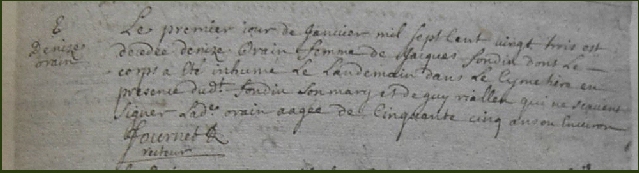 E
Denize
orain
Le premier iour de Ganvier mil sept Cent vingt trois est
decedée denize Orain femme de Jacques fondin dont Le
corps a été inhumé Le Landemain dans Le Cymetiere en
presence dudt. fondin son mary et de guy riallen qui ne scavent
signer Ladte orain aagée de Cinquante cinq ans ou Environ
fournet
recteur